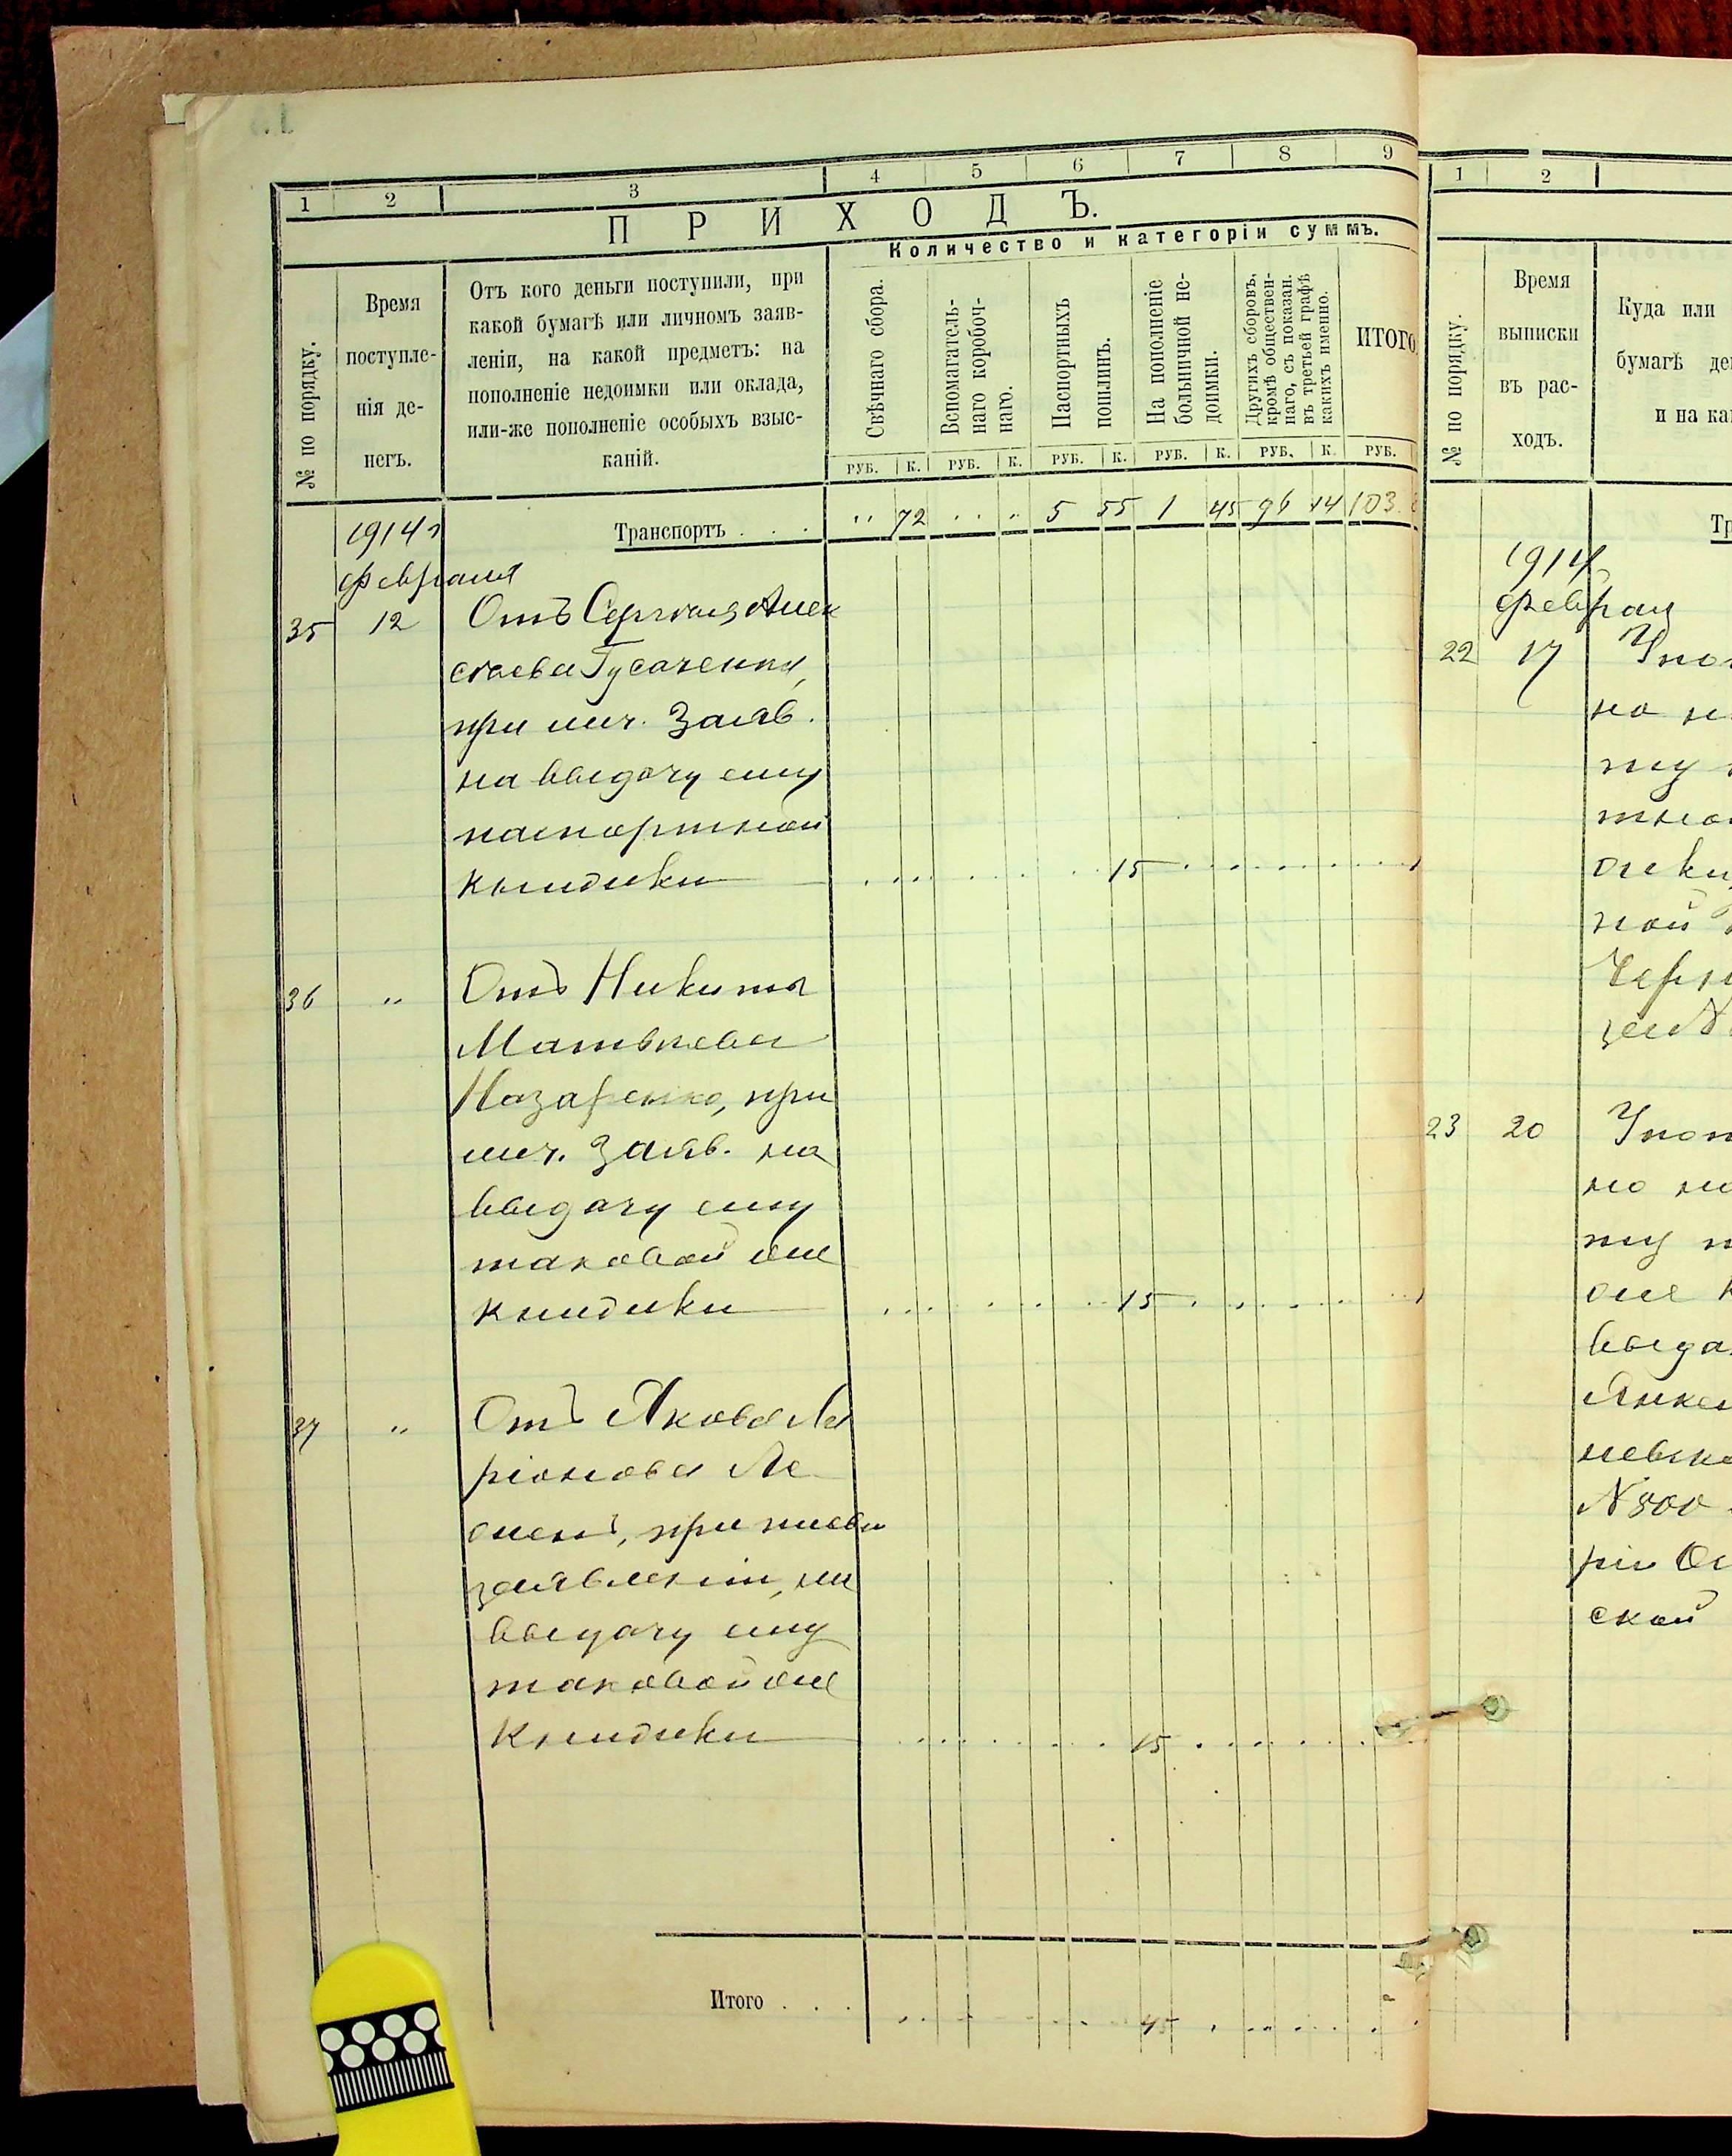 1 2 3 4 5 6 7 8 9
ПРИХОДЪ.
Количество и категоріи суммъ.
№ по порядку.
Время
поступле-
нія де-
негъ.
Отъ кого деньги поступили, при
какой бумагѣ или личномъ заяв-
леніи, на какой предметъ: на
пополненіе недоимки или оклада,
или-же пополненіе особыхъ взыс-
каній.
Свѣчнаго сбора.
Вспомагатель-
наго коробоч-
наго.
Паспортныхъ
пошлинъ.
На пополненіе
больничной не-
доимки.
Другихъ сборовъ,
кромѣ обществен-
наго, съ показан.
въ третьей графѣ
какихъ именно.
ИТОГО
РУБ. К. РУБ. К. РУБ. К. РУБ. К. РУБ. К. РУБ.
Транспортъ . . . „ 72 „ „ 5 55 1 45 96 14 103
1914 г
февраля
35 12 Отъ Сергѣя Алек
сѣева Гусаченка,
при лич. заяв.
на выдачу ему
паспортной
книжки 15
36 „ Отъ Никиты
Матвѣева
Назаренко, при
лич. заяв. на
выдачу ему
таковой же
книжки 15
37 „ Отъ Якова Ла
ріонова
при
заявленіи, на
выдачу ему
таковой же
книжки 15
Итого . . . 45
1 2
№ по порядку.
Время
выписки
въ рас-
ходъ.
Куда или
бумагѣ де
и на ка
Тр
1914
феврал
22 17 Упо
но н
ту
тно
ной
Черн
23 20 Упот
но на
ту п
же к
выда
невско
№ 500
ской